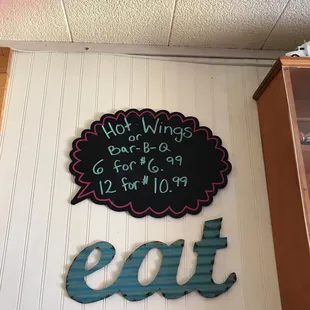 Hot Wings
or
Bar-B-Q
6 for $6.99
12 for $10.99
eat